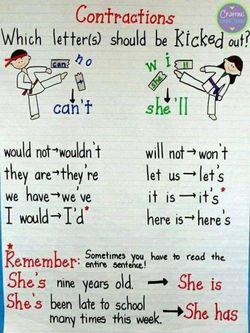 Contractions
Which letter(s) should be kicked out?
can't
she'll
would not→wouldn't
will not→won't
they are→they're
let us→let's
we have→we've
it is→it's*
I would→I'd*
here is→here's
*Remember: Sometimes you have to read the entire sentence!
She's nine years old. → She is
She's been late to school many times this week. → She has